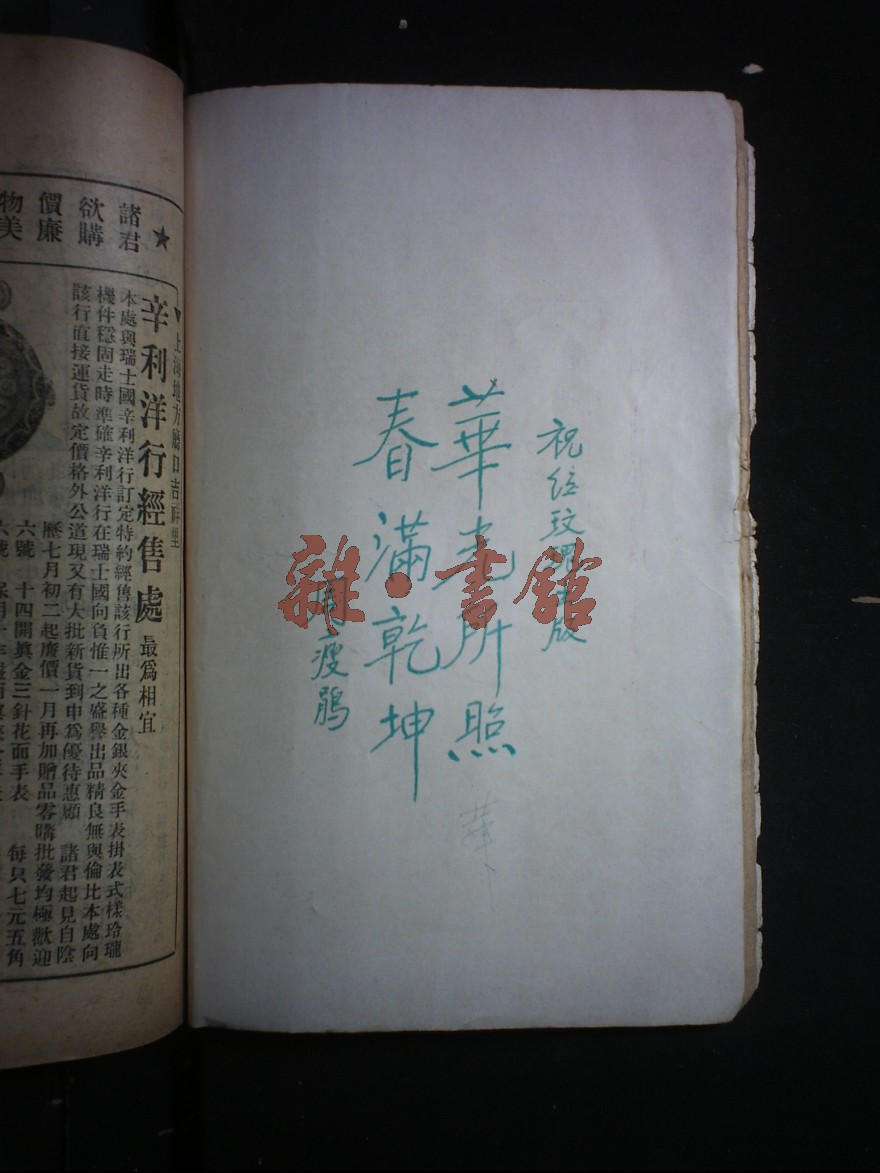 祝红玫瑰出版
華光所照
春滿乾坤
周瘦鵑
華
雜·書館
★諸君
欲購
價廉
物美
上海地方廳口吉祥里
辛利洋行經售處 最為相宜
本處與瑞士國辛利洋行訂定特約經售該行所出各種金銀夾金手表掛表式樣玲瓏
機件穩固走時準確辛利洋行在瑞士國向負惟一之盛譽出品精良無與倫比本處向
該行直接運貨故定價格外公道現又有大批新貨到申為優待惠顧 諸君起見自陰
歷七月初二起廉價一月再加贈品零購批發均極歡迎
六號 十四開真金三針花面手表 每只七元五角